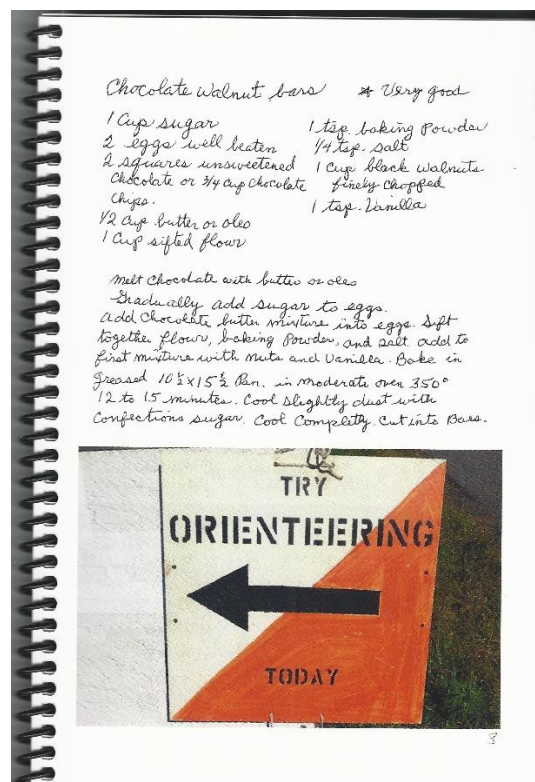 Chocolate Walnut bars * Very good
1 Cup sugar
2 eggs well beaten
2 squares unsweetened
Chocolate or 3/4 cup Chocolate
Chips.
1/2 Cup butter or oleo
1 Cup sifted flour
1 tsp. baking Powder
1/4 tsp. salt
1 Cup black walnuts
finely chopped
1 tsp. Vanilla
Melt Chocolate with butter or oleo
Gradually add sugar to eggs.
Add Chocolate butter mixture into eggs. Sift
together flour, baking Powder, and salt. add to
first mixture with nuts and Vanilla. Bake in
greased 10 1/2 x 15 1/2 Pan. in moderate oven 350°
12 to 15 minutes. Cool slightly dust with
Confections sugar. Cool Completly. Cut into Bars.
TRY
ORIENTEERING
TODAY
3